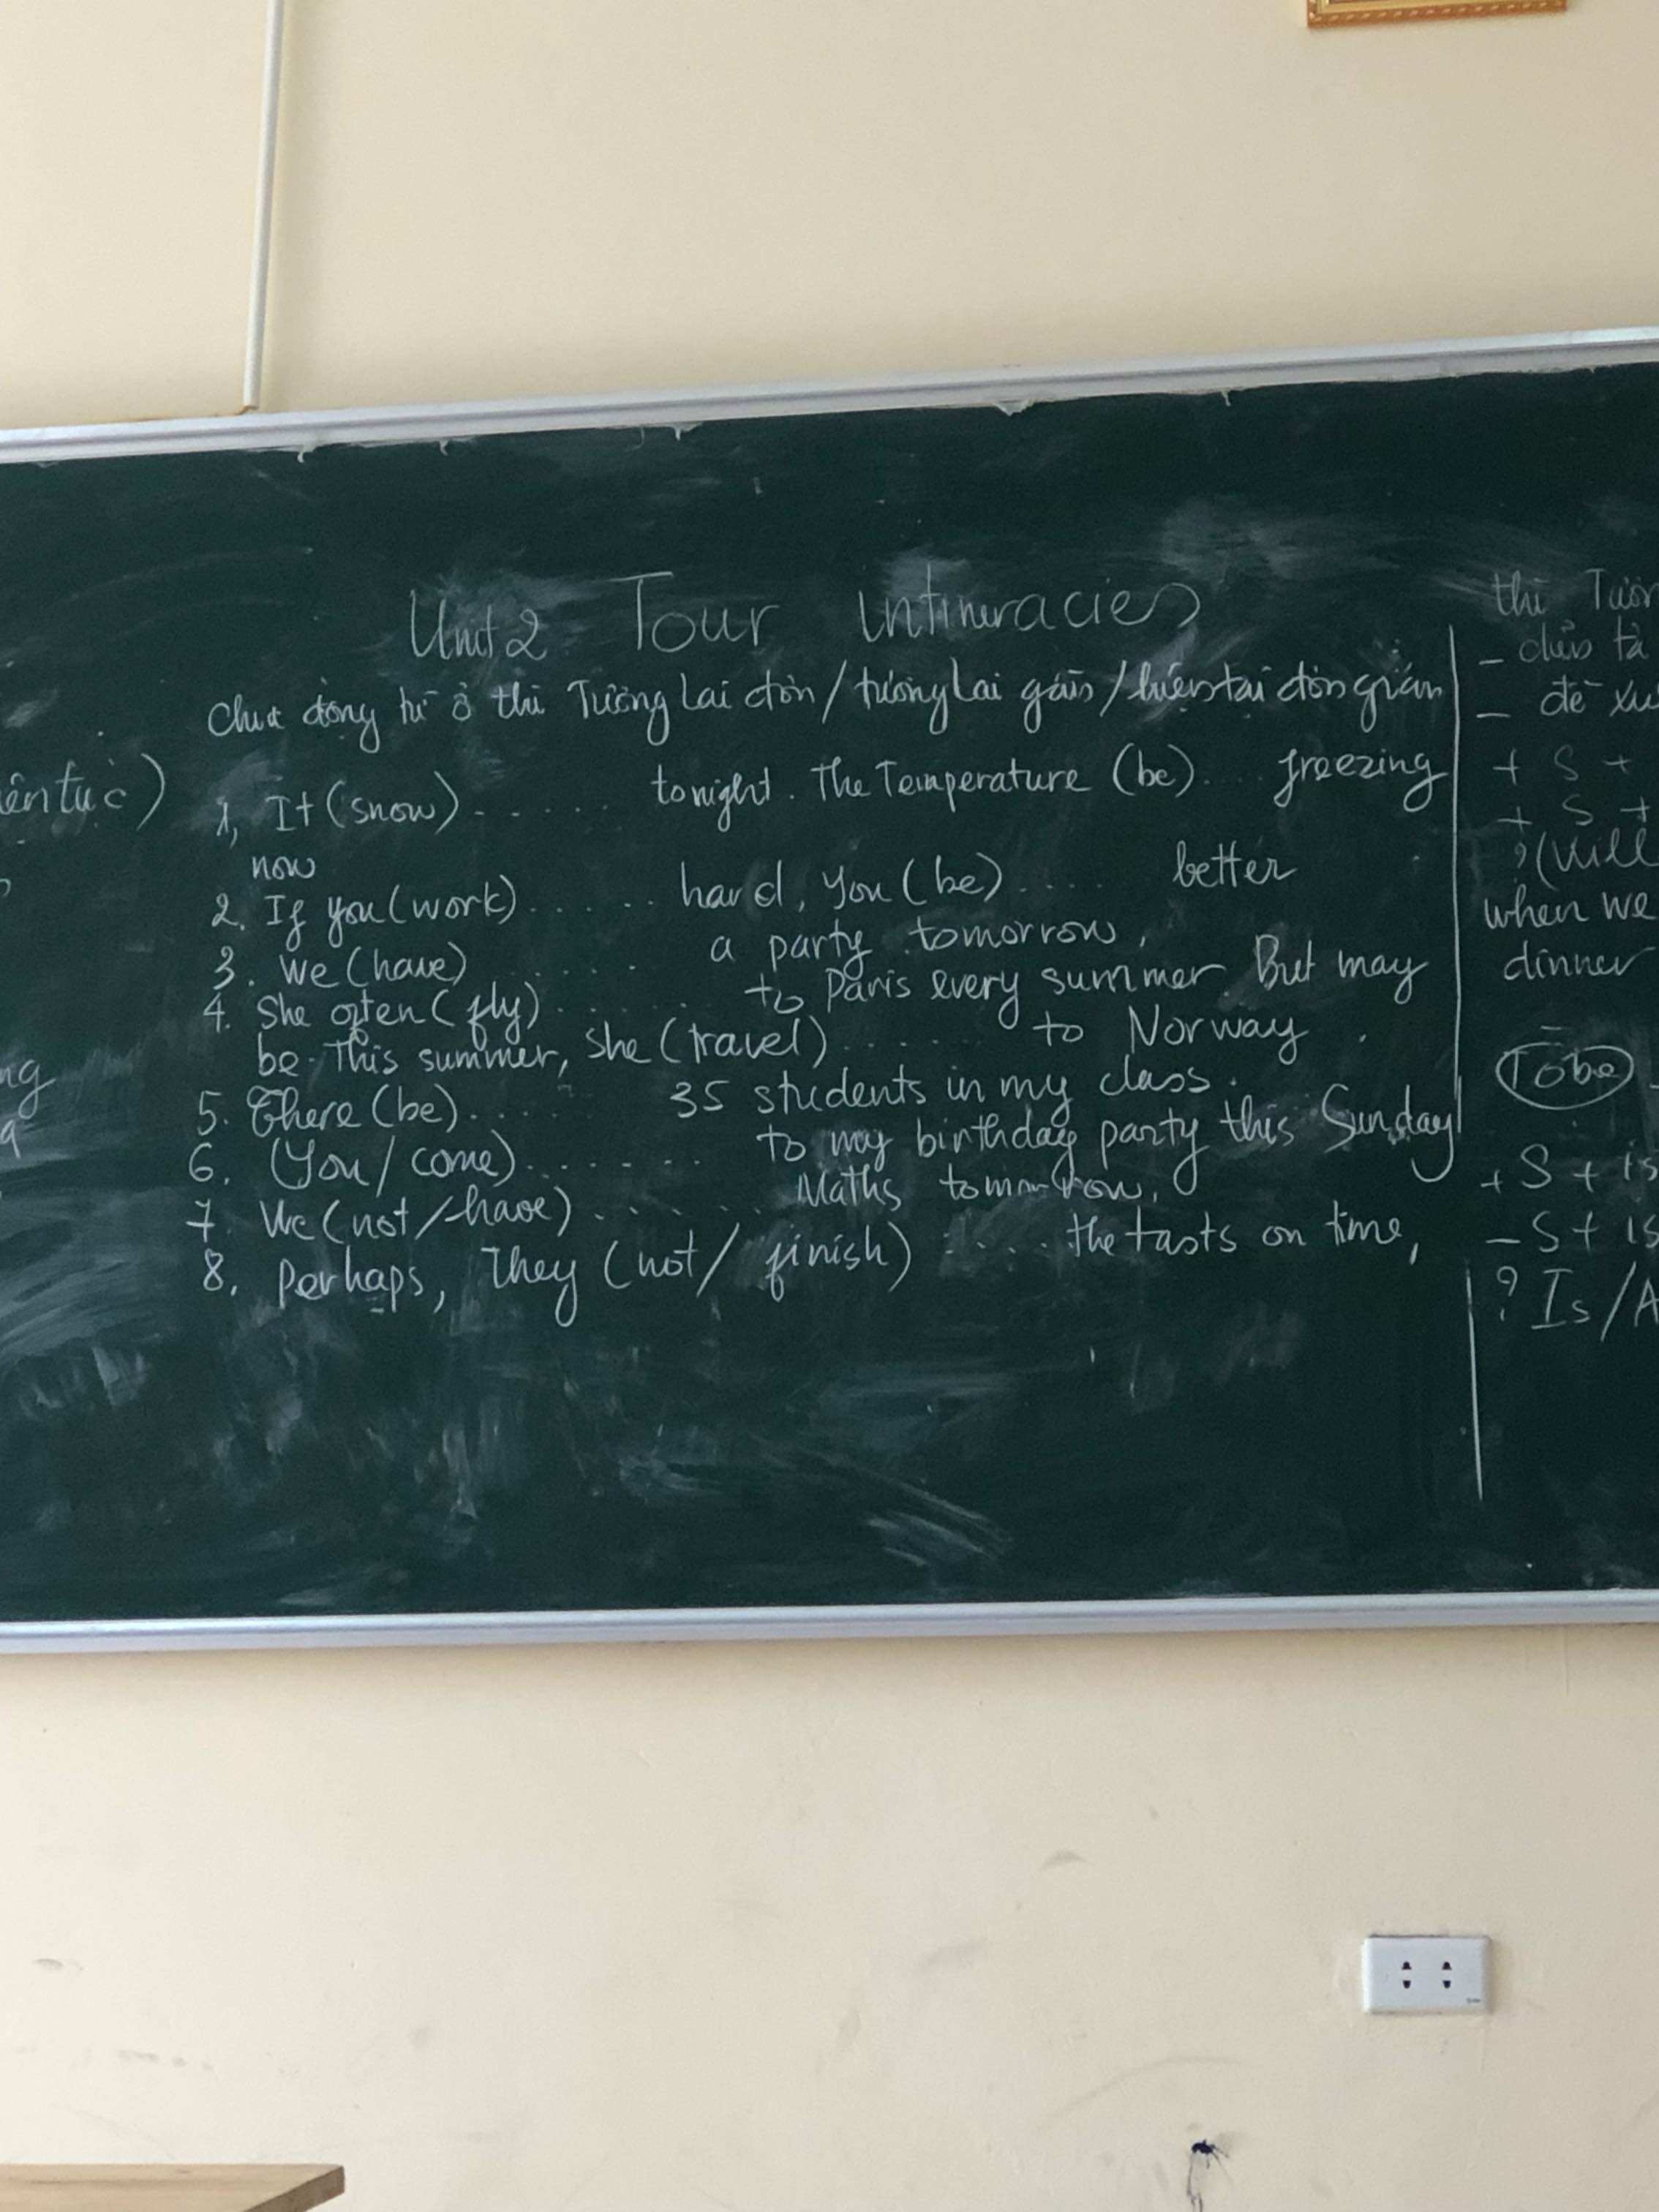 Unit 2 Tour Intineracies
chia động từ ở thì Tương Lai đơn / tương Lai gần / hiện tại đơn giản
iên tục)
1, It (snow) - ..... tonight. The Temperature (be) .... freezing
now
2. If you (work) ...... hard, you (be) .... better
3. We (have) ...... a party tomorrow,
4. She often (fly) ...... to Paris every summer. But may
be. This summer, she (travel) ...... to Norway.
5. There (be) ...... 35 students in my class.
6. (You / come) ....... to my birthday party this Sunday
7. We (not / have) ...... Maths tomorrow,
8. Perhaps, They (not / finish) ..... the tasts on time,
ng
a
thì Tươn
- diễn tả
- đề xu
+ S +
+ S +
? (Will
when we
dinner
Tobe
+ S + is
- S + is
? Is / A